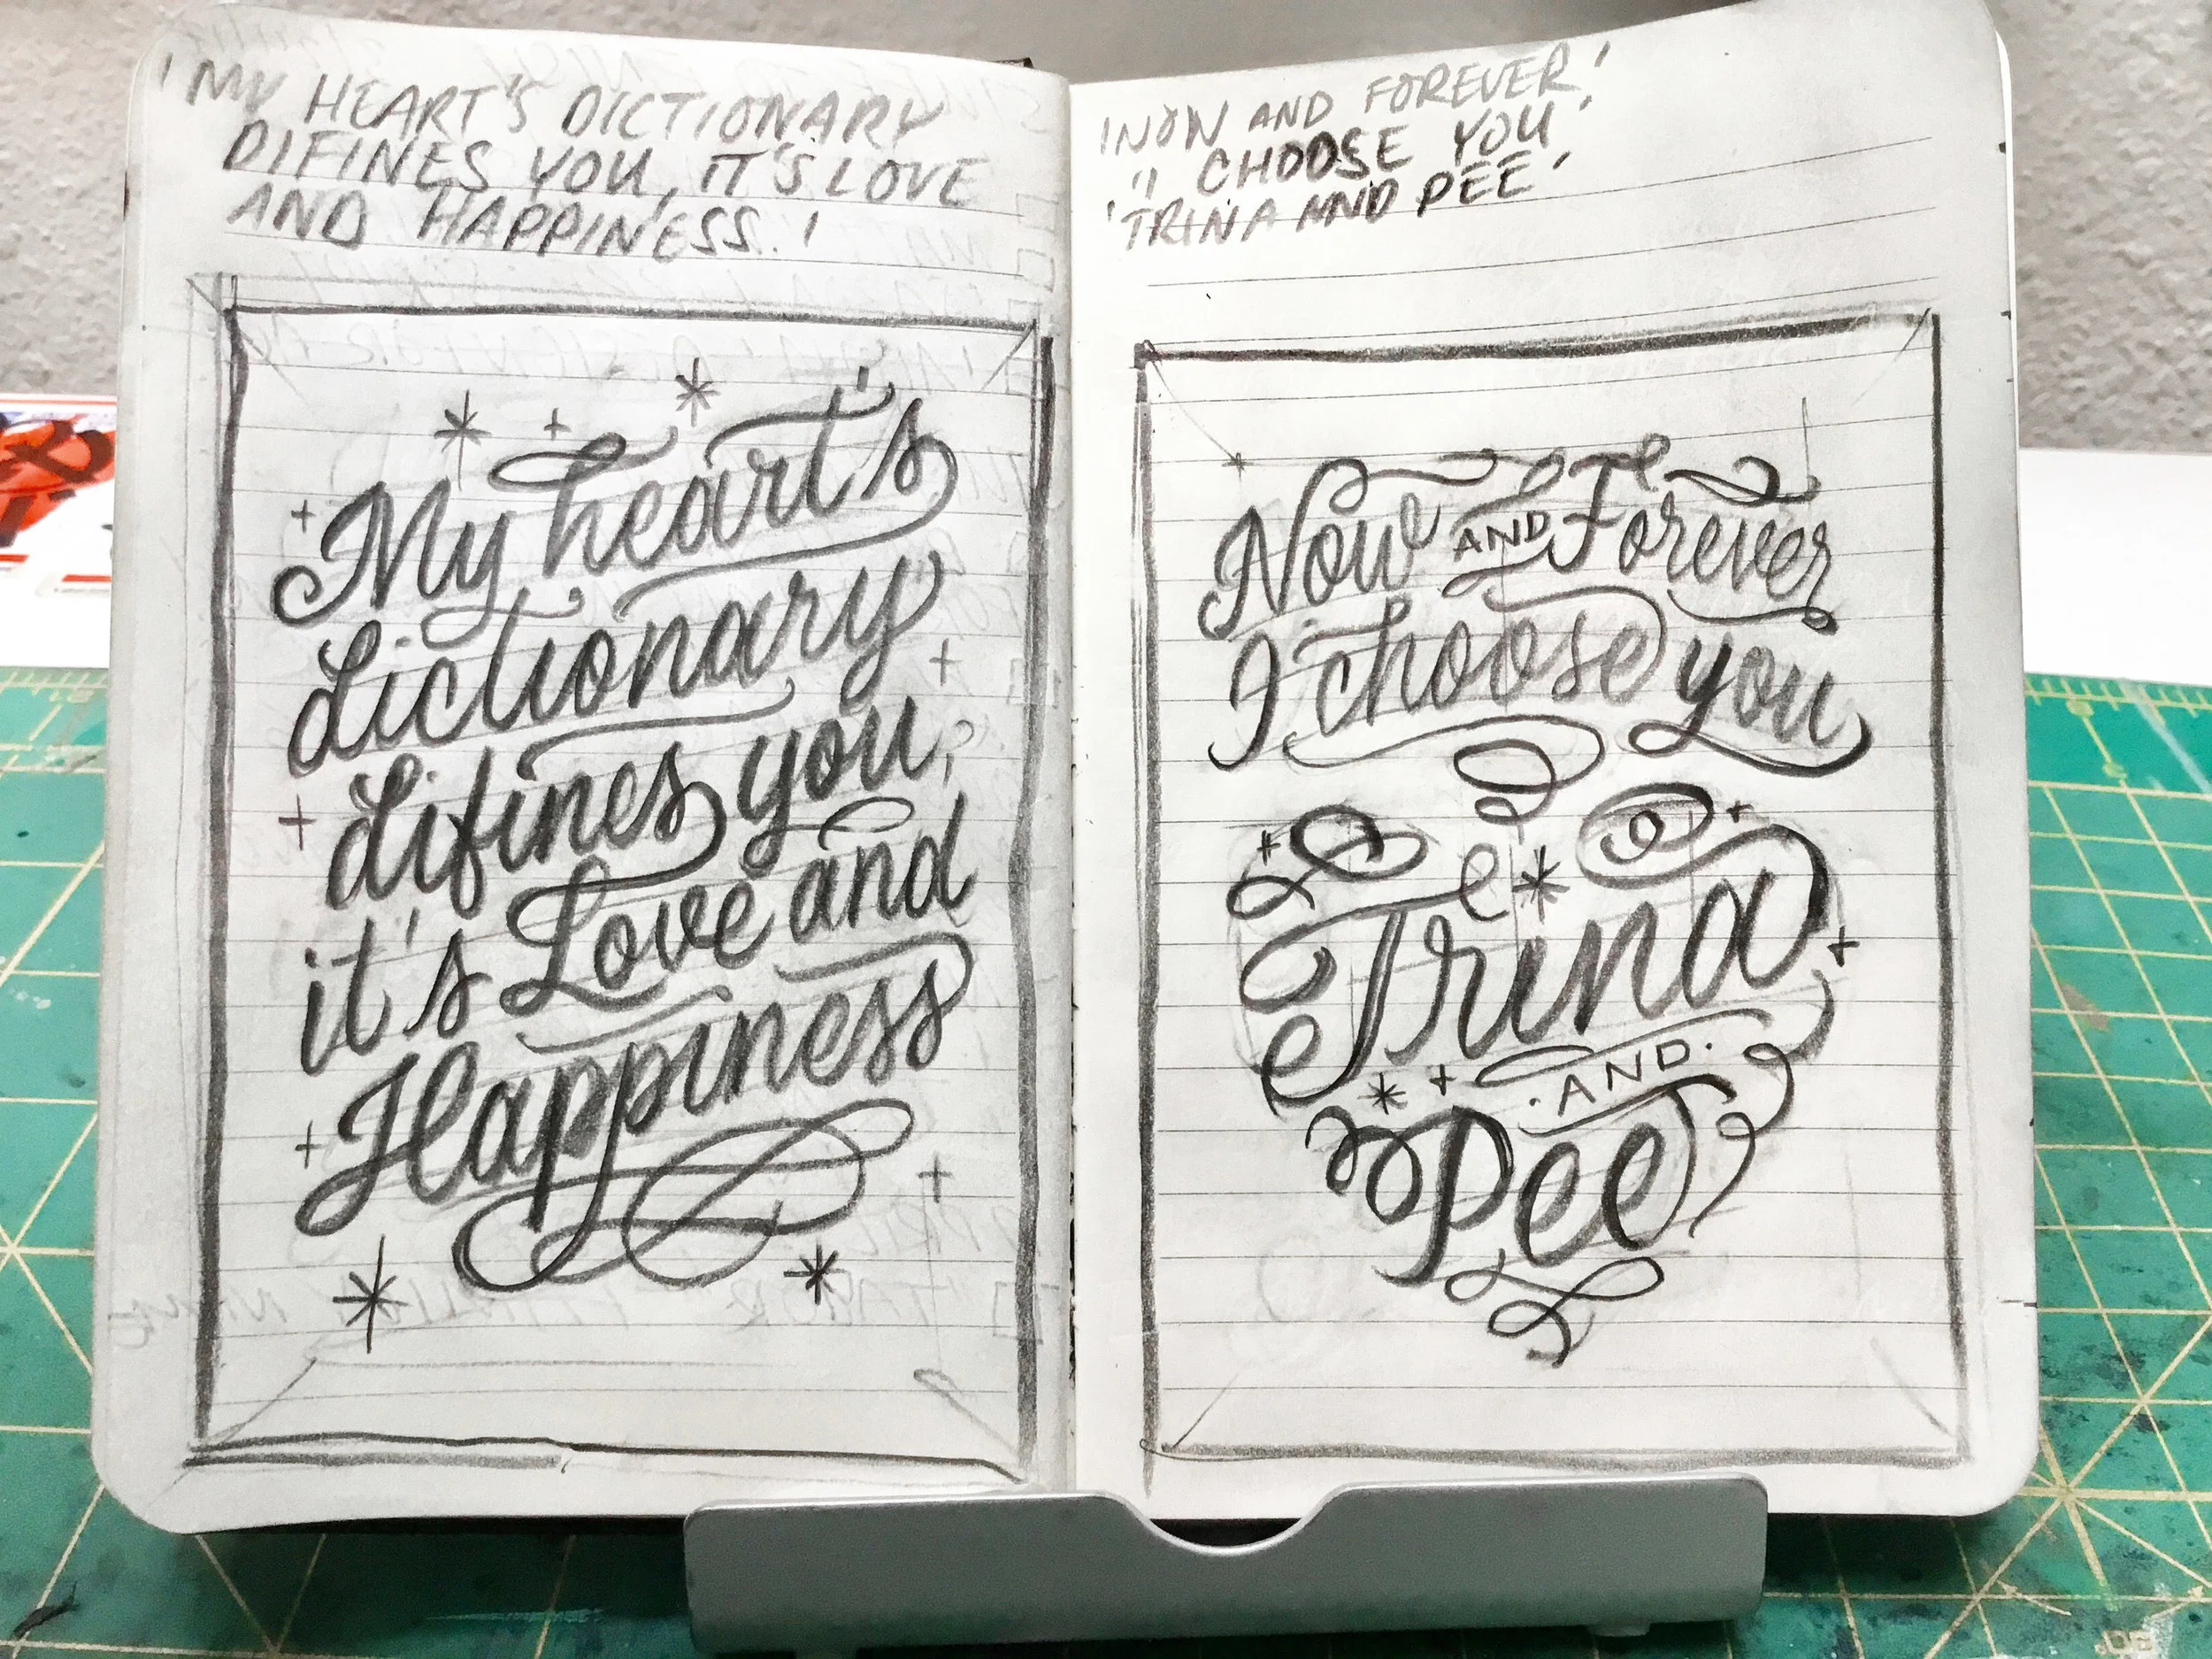 'MY HEART'S DICTIONARY
DIFINES YOU, IT'S LOVE
AND HAPPINESS.'
My heart's
dictionary
difines you,
it's Love and
Happiness
'NOW AND FOREVER,'
'I CHOOSE YOU'
'TRINA AND PEE'
Now AND Forever
I choose you
Trina
· AND ·
Pee